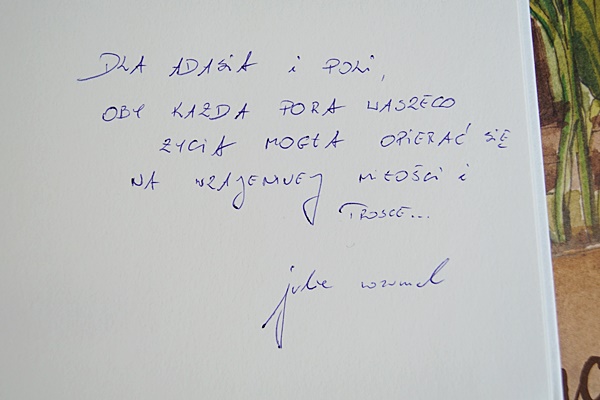 DLA ADASIA i POLI,
OBY KAŻDA PORA WASZEGO
ŻYCIA MOGŁA OPIERAĆ SIĘ
NA WZAJEMNEJ MIŁOŚCI i
TROSCE...